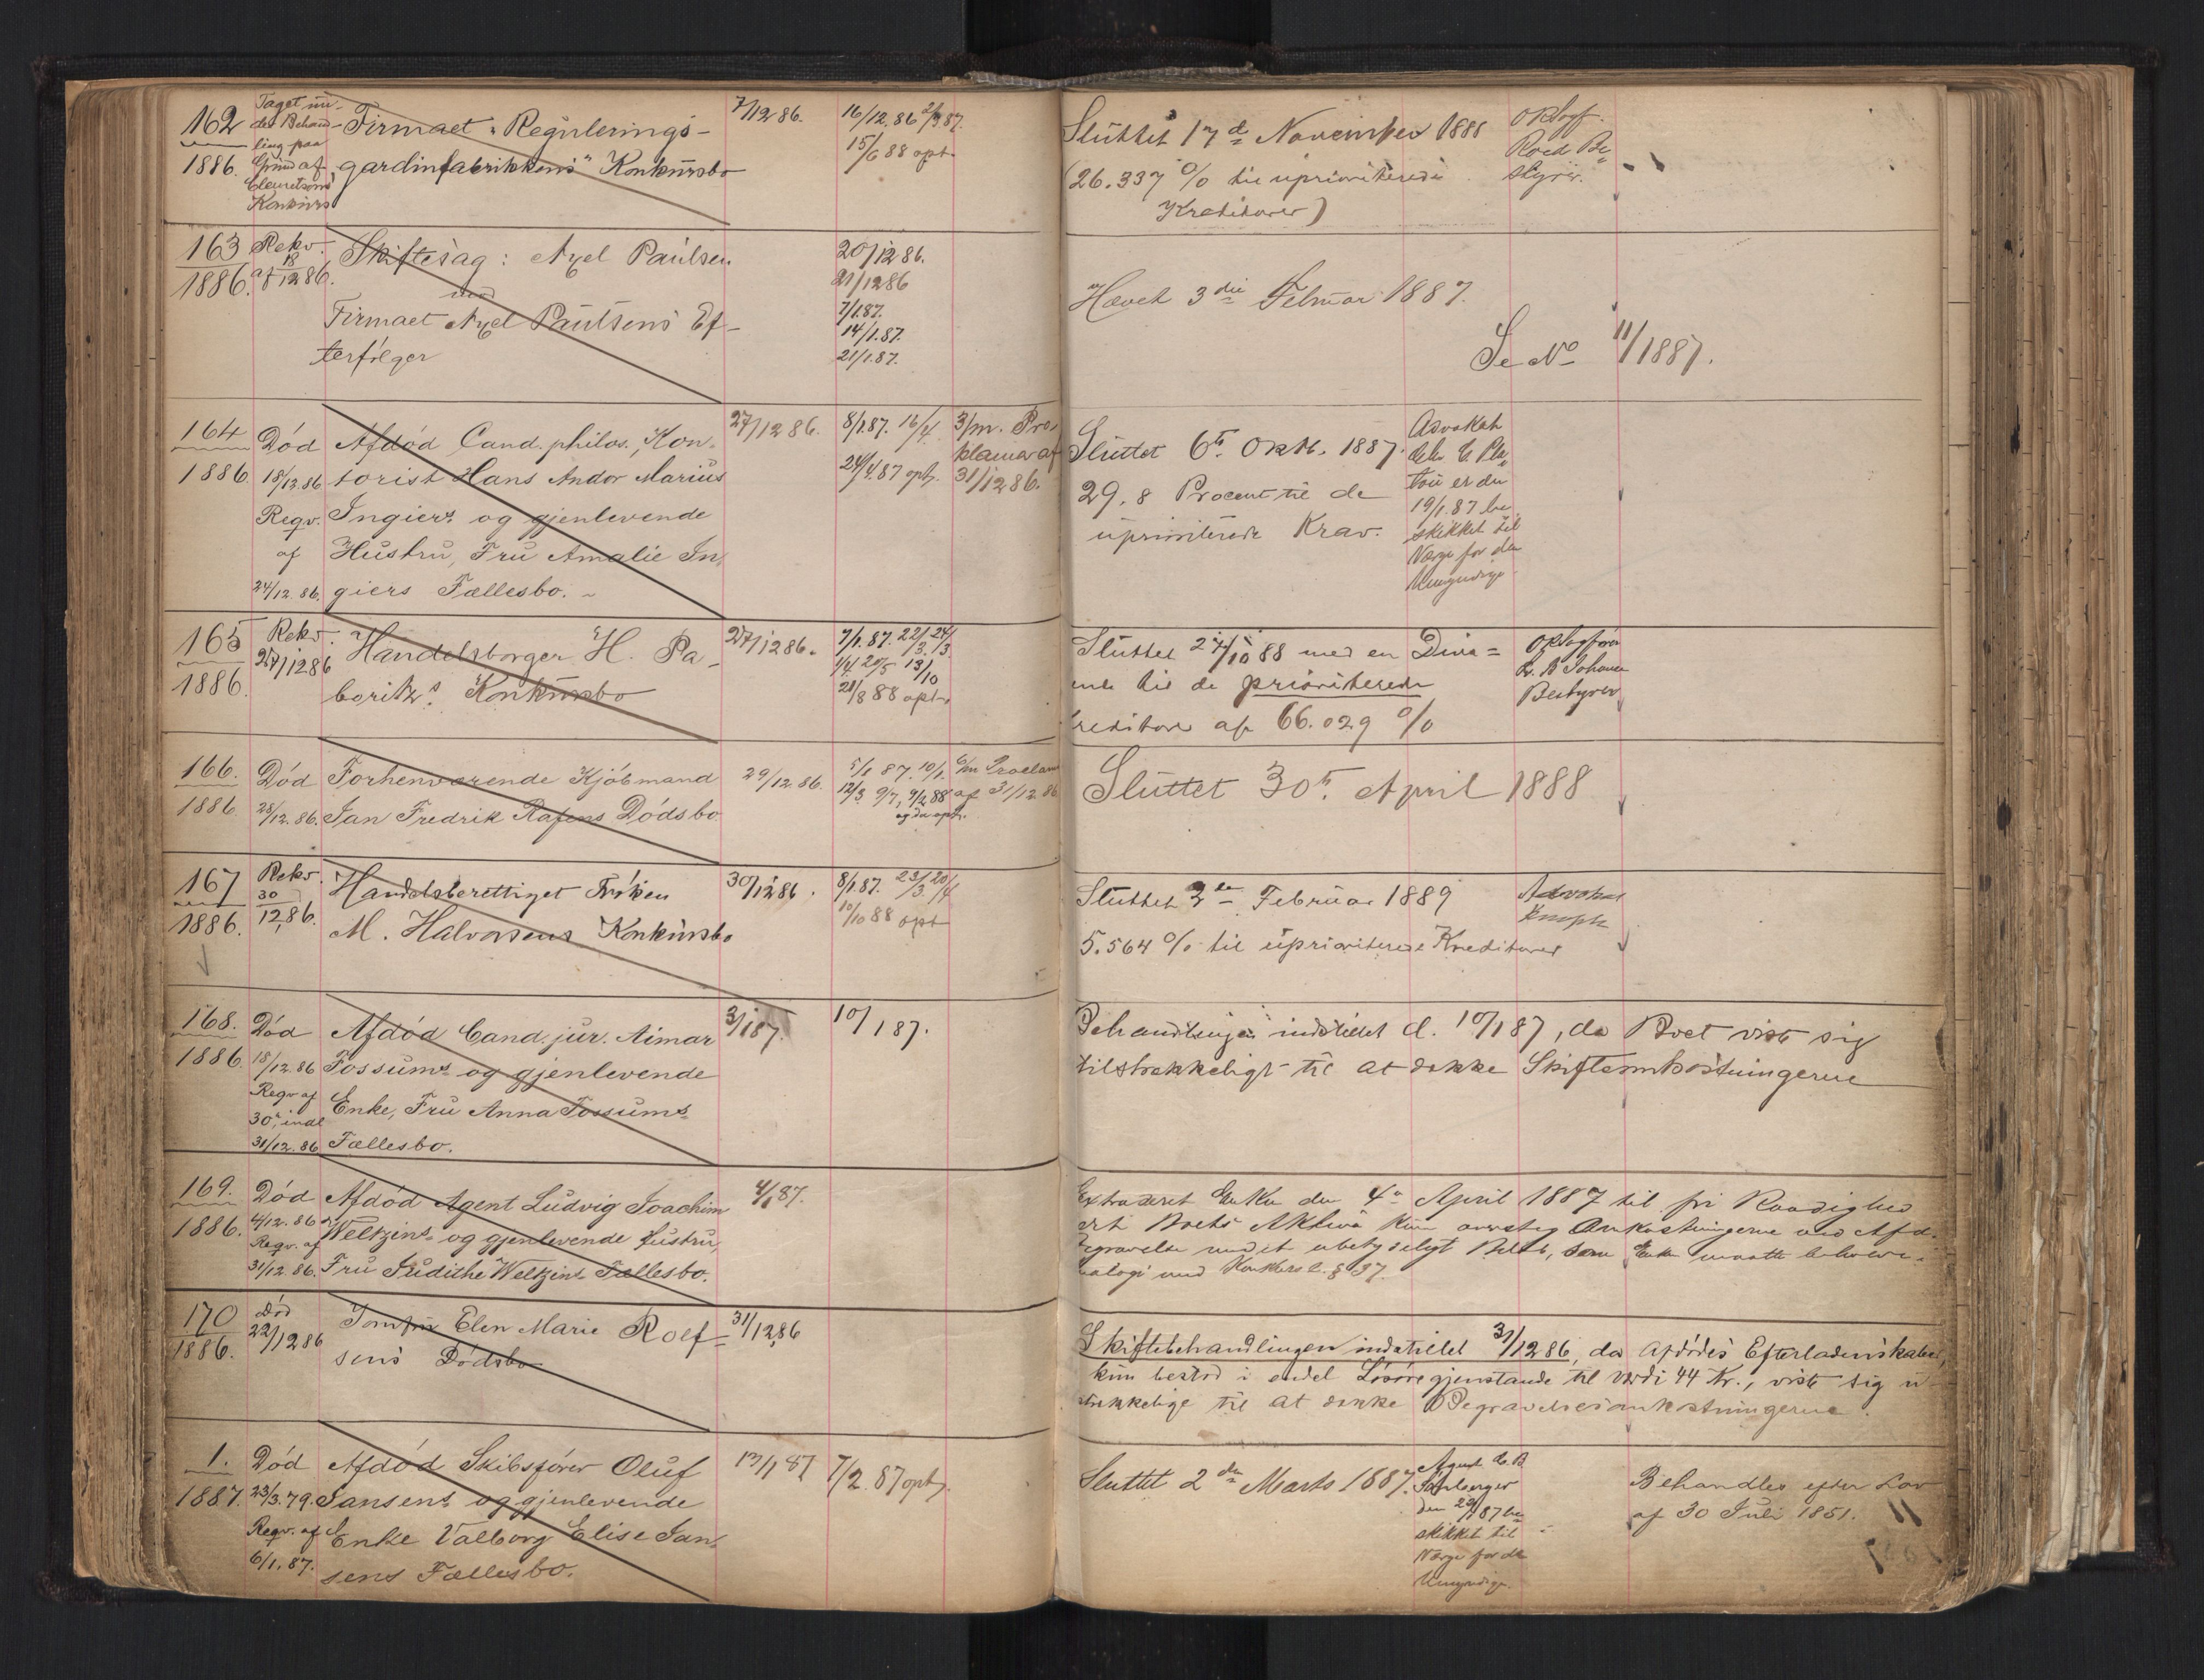 162
1886.
Taget un-
der Behand-
ling paa
Grund af
Konkurs
Firmaet "Regulerings-
gardinfabrikkens" Konkursbo
7/12 86.
16/12.86 2/3 87.
15/6 88 opt.
Sluttet 17d November 1888
(26.337 % til uprioriterede
Kreditorer)
Roed Be-
styrer.
163
1886.
Rekv.
af 18/12 86.
Skiftesag: Axel Paulsen
mod
Firmaet Axel Paulsens Ef-
terfölger
20/12 86.
21/12 86
7/1.87.
14/1.87.
21/1.87.
Hævet 3die Februar 1887.
Se No 11/1887.
164
1886.
Död
18/12.86
Reqv.
af
24/12.86.
Afdöd Cand. philos., Kon-
torist Hans Andor Marius
Ingiers og gjenlevende
Hustru, Fru Amalie In-
giers Fællesbo.
27/12 86.
8/1.87. 16/4
24/4.87 opt.
3/m. Pro-
klama af
31/12 86.
Sluttet 6te Oktb. 1887.
29,8 Procent til de
uprioriterede Krav.
Advokat
tou er den
19/1.87 be-
skikket til
Værge for den
Umyndige
165
1886.
Rekv.
27/12 86
Handelsborger H. Pa-
boritz's Konkursbo
27/12 86.
7/1.87. 22/3. 24/3.
1/4 20/5 13/10
21/8 88 opt.
Sluttet 27/10 88 med en Divi=
ende til de prioriterede
Kreditorer af 66.029 %
Bestyrer
166.
1886
Död
28/12.86.
Forhenværende Kjöbmand
Jan Fredrik Rafens Dödsbo
29/12.86.
5/1 87. 10/1.
12/3. 9/7, 4/2 88
og da opt.
6/m Proclama
af 31/12.86
Sluttet 30te April 1888
167
1886.
Rekv.
30/12.86.
Handelsberettiget Fröken
M. Halvorsens Konkursbo
30/12 86.
8/1.87. 23/3 20/4
10/10 88 opt
Sluttet 2den Februar 1889
5.564 % til uprioriterede Kreditorer
Advokat
168.
1886.
Död
18/12.86
Reqv af
30te indl
31/12.86
Afdöd Cand. jur. Aimar
Fossums og gjenlevende
Enke, Fru Anna Fossums
Fællesbo.
3/1 87.
10/1 87.
Behandlingen indstillet d. 10/1 87, da Boet viste sig
tilstrækkeligt til at dække Skifteomkostningerne
169.
1886.
Död
4/12.86
Reqv. af
31/12 86.
Afdöd Agent Ludvig Joachim
Weltzins og gjenlevende Hustru,
Fru Judithe Weltzins Fællesbo.
4/1 87.
Extraderet Enken den 4de April 1887 til fri Raadighed
Boets Aktiva kun oversteg Omkostningerne ved Afd.
Begravelse med et ubetydeligt Belöb, som Enken maatte beholde
nalogi med Konkursl. § 37.
170
1886.
Död
22/12 86
Jomfru Elen Marie Rolf-
sens Dödsbo
31/12 86
Skiftebehandlingen indstillet 31/12 86, da Afdödes Efterladenskaber,
kun bestod i endel Lösöregjenstande til Værdi 44 Kr., viste sig u-
strækkelige til at dække Begravelsesomkostningerne.
1.
1887.
Död
23/3.79.
Reqv. af
6/1.87.
Afdöd Skibsförer Oluf
Jansens og gjenlevende
Enke Valborg Elise Jan-
sens Fællesbo.
13/1 87
7/2.87 opt.
Sluttet 2den Marts 1887.
Agent
skikket til
Værge for de
Umyndige.
Behandles efter Lov
af 30 Juli 1851.